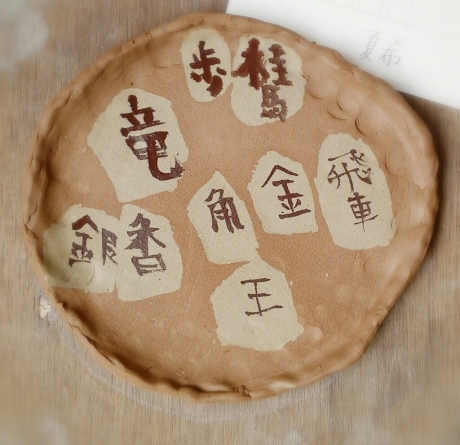 歩
桂馬
竜
飛車
金
角
銀
香
王